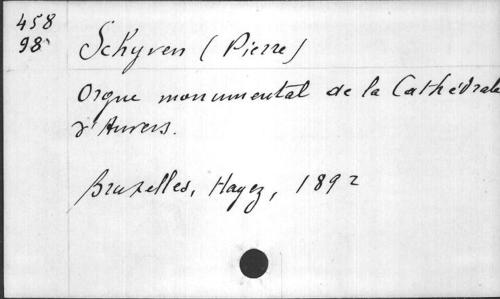 458
98
Schyven (Pierre)
Orgue monumental de la Cathédrale
d'Anvers.
Bruxelles, Hayez, 1892